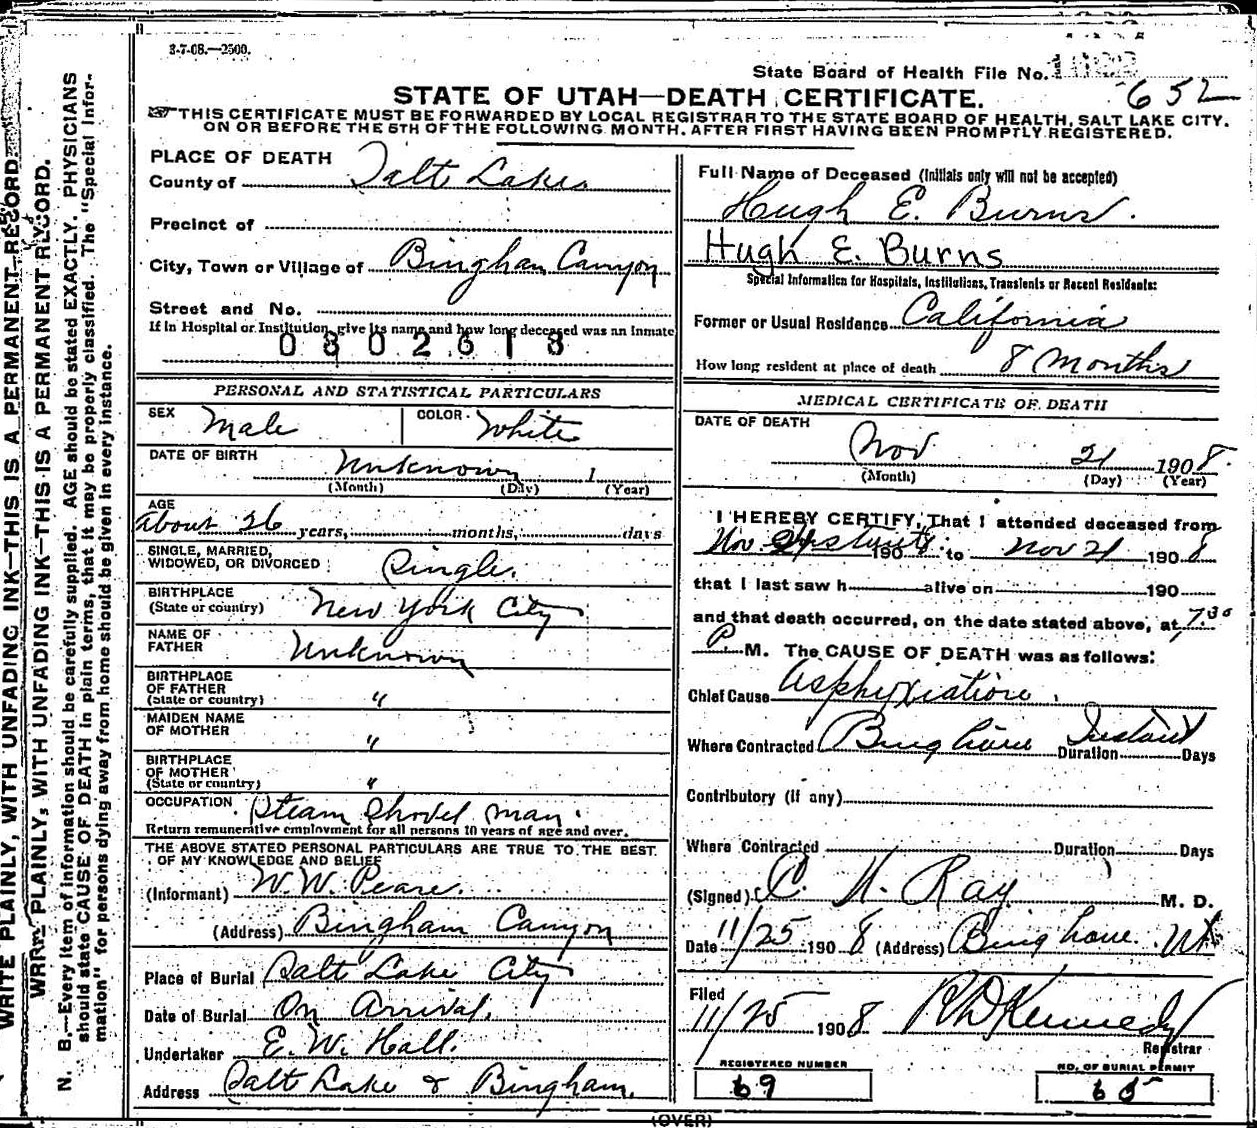 3-7-08.—2500.
State Board of Health File No.
652
STATE OF UTAH—DEATH CERTIFICATE.
THIS CERTIFICATE MUST BE FORWARDED BY LOCAL REGISTRAR TO THE STATE BOARD OF HEALTH, SALT LAKE CITY.
ON OR BEFORE THE 5TH OF THE FOLLOWING MONTH. AFTER FIRST HAVING BEEN PROMPTLY REGISTERED.
WRITE PLAINLY, WITH UNFADING INK—THIS IS A PERMANENT RECORD.
PLAINLY, WITH UNFADING INK—THIS IS A PERMANENT RECORD.
N. B.—Every item of information should be carefully supplied. AGE should be stated EXACTLY. PHYSICIANS
should state CAUSE OF DEATH in plain terms, that it may be properly classified. The "Special Infor-
mation" for persons dying away from home should be given in every instance.
PLACE OF DEATH
County of Salt Lake
Precinct of
City, Town or Village of Bingham Canyon
Street and No.
If in Hospital or Institution, give its name and how long deceased was an inmate
0302613
PERSONAL AND STATISTICAL PARTICULARS
SEX Male COLOR White
DATE OF BIRTH Unknown 1
(Month) (Day) (Year)
AGE
about 26 years, months, days
SINGLE, MARRIED,
WIDOWED, OR DIVORCED Single.
BIRTHPLACE
(State or country) New York City
NAME OF
FATHER Unknown
BIRTHPLACE
OF FATHER
(State or country) "
MAIDEN NAME
OF MOTHER "
BIRTHPLACE
OF MOTHER
(State or country) "
OCCUPATION Steam Shovel man.
Return remunerative employment for all persons 10 years of age and over.
THE ABOVE STATED PERSONAL PARTICULARS ARE TRUE TO THE BEST
OF MY KNOWLEDGE AND BELIEF
(Informant) W. W. Peare.
(Address) Bingham Canyon
Place of Burial Salt Lake City
Date of Burial On Arrival.
Undertaker E. W. Hall.
Address Salt Lake & Bingham.
Full Name of Deceased (Initials only will not be accepted)
Hugh E. Burns.
Hugh E. Burns
Special Information for Hospitals, Institutions, Transients or Recent Residents:
Former or Usual Residence California
How long resident at place of death 8 months
MEDICAL CERTIFICATE OF DEATH
DATE OF DEATH
Nov 21 1908.
(Month) (Day) (Year)
I HEREBY CERTIFY, That I attended deceased from
Nov 1908 to Nov 21 1908
that I last saw h alive on 190
and that death occurred, on the date stated above, at 7.30
P. M. The CAUSE OF DEATH was as follows:
Chief Cause Asphyxiation.
Where Contracted Bingham Duration Instant Days
Contributory (if any)
Where Contracted Duration Days
(Signed) C. N. Ray M. D.
Date 11/25 1908 (Address) Bingham Ut
Filed
11/25 1908 R D Kennedy
Registrar
REGISTERED NUMBER
69
NO. OF BURIAL PERMIT
65
(OVER)